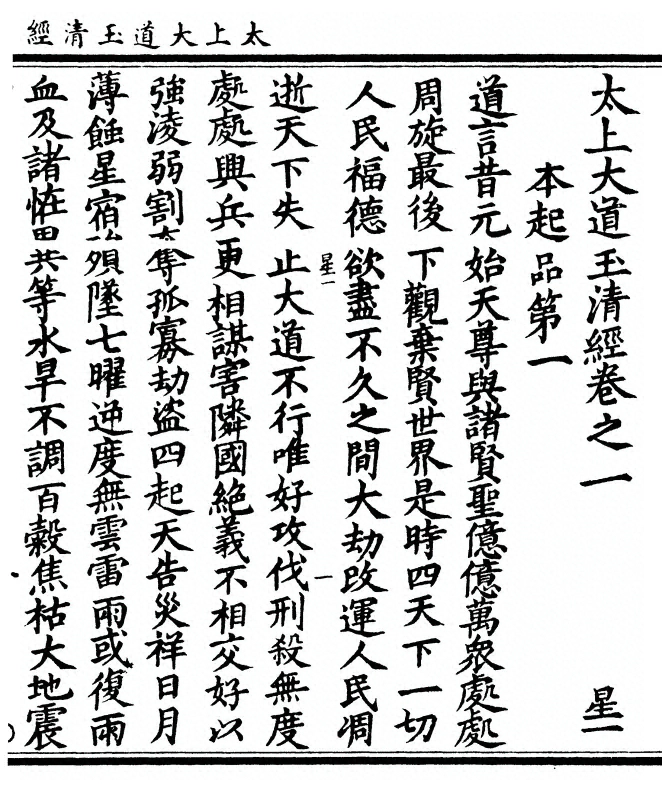 太上大道玉清經
太上大道玉清經卷之一 星一
本起品第一
道言昔元始天尊與諸賢聖億億萬衆處處
周旋最後下觀棄賢世界是時四天下一切
人民福德欲盡不久之間大劫改運人民凋
星一 一
逝天下失止大道不行唯好攻伐刑殺無度
處處興兵更相謀害隣國絕義不相交好以
強淩弱割奪孤寡劫盜四起天告災祥日月
薄蝕星宿殞墜七曜逆度無雲雷雨或復雨
血及諸恠異等水旱不調百穀焦枯大地震